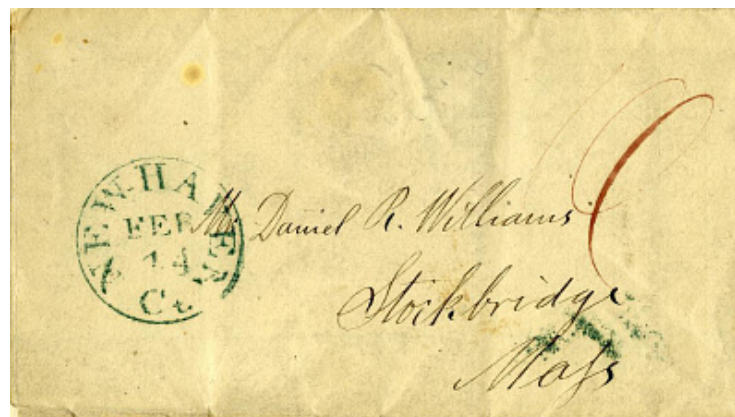 NEW HAVEN
FEB
14
Ct
Mr. Daniel R. Williams
Stockbridge
Mass